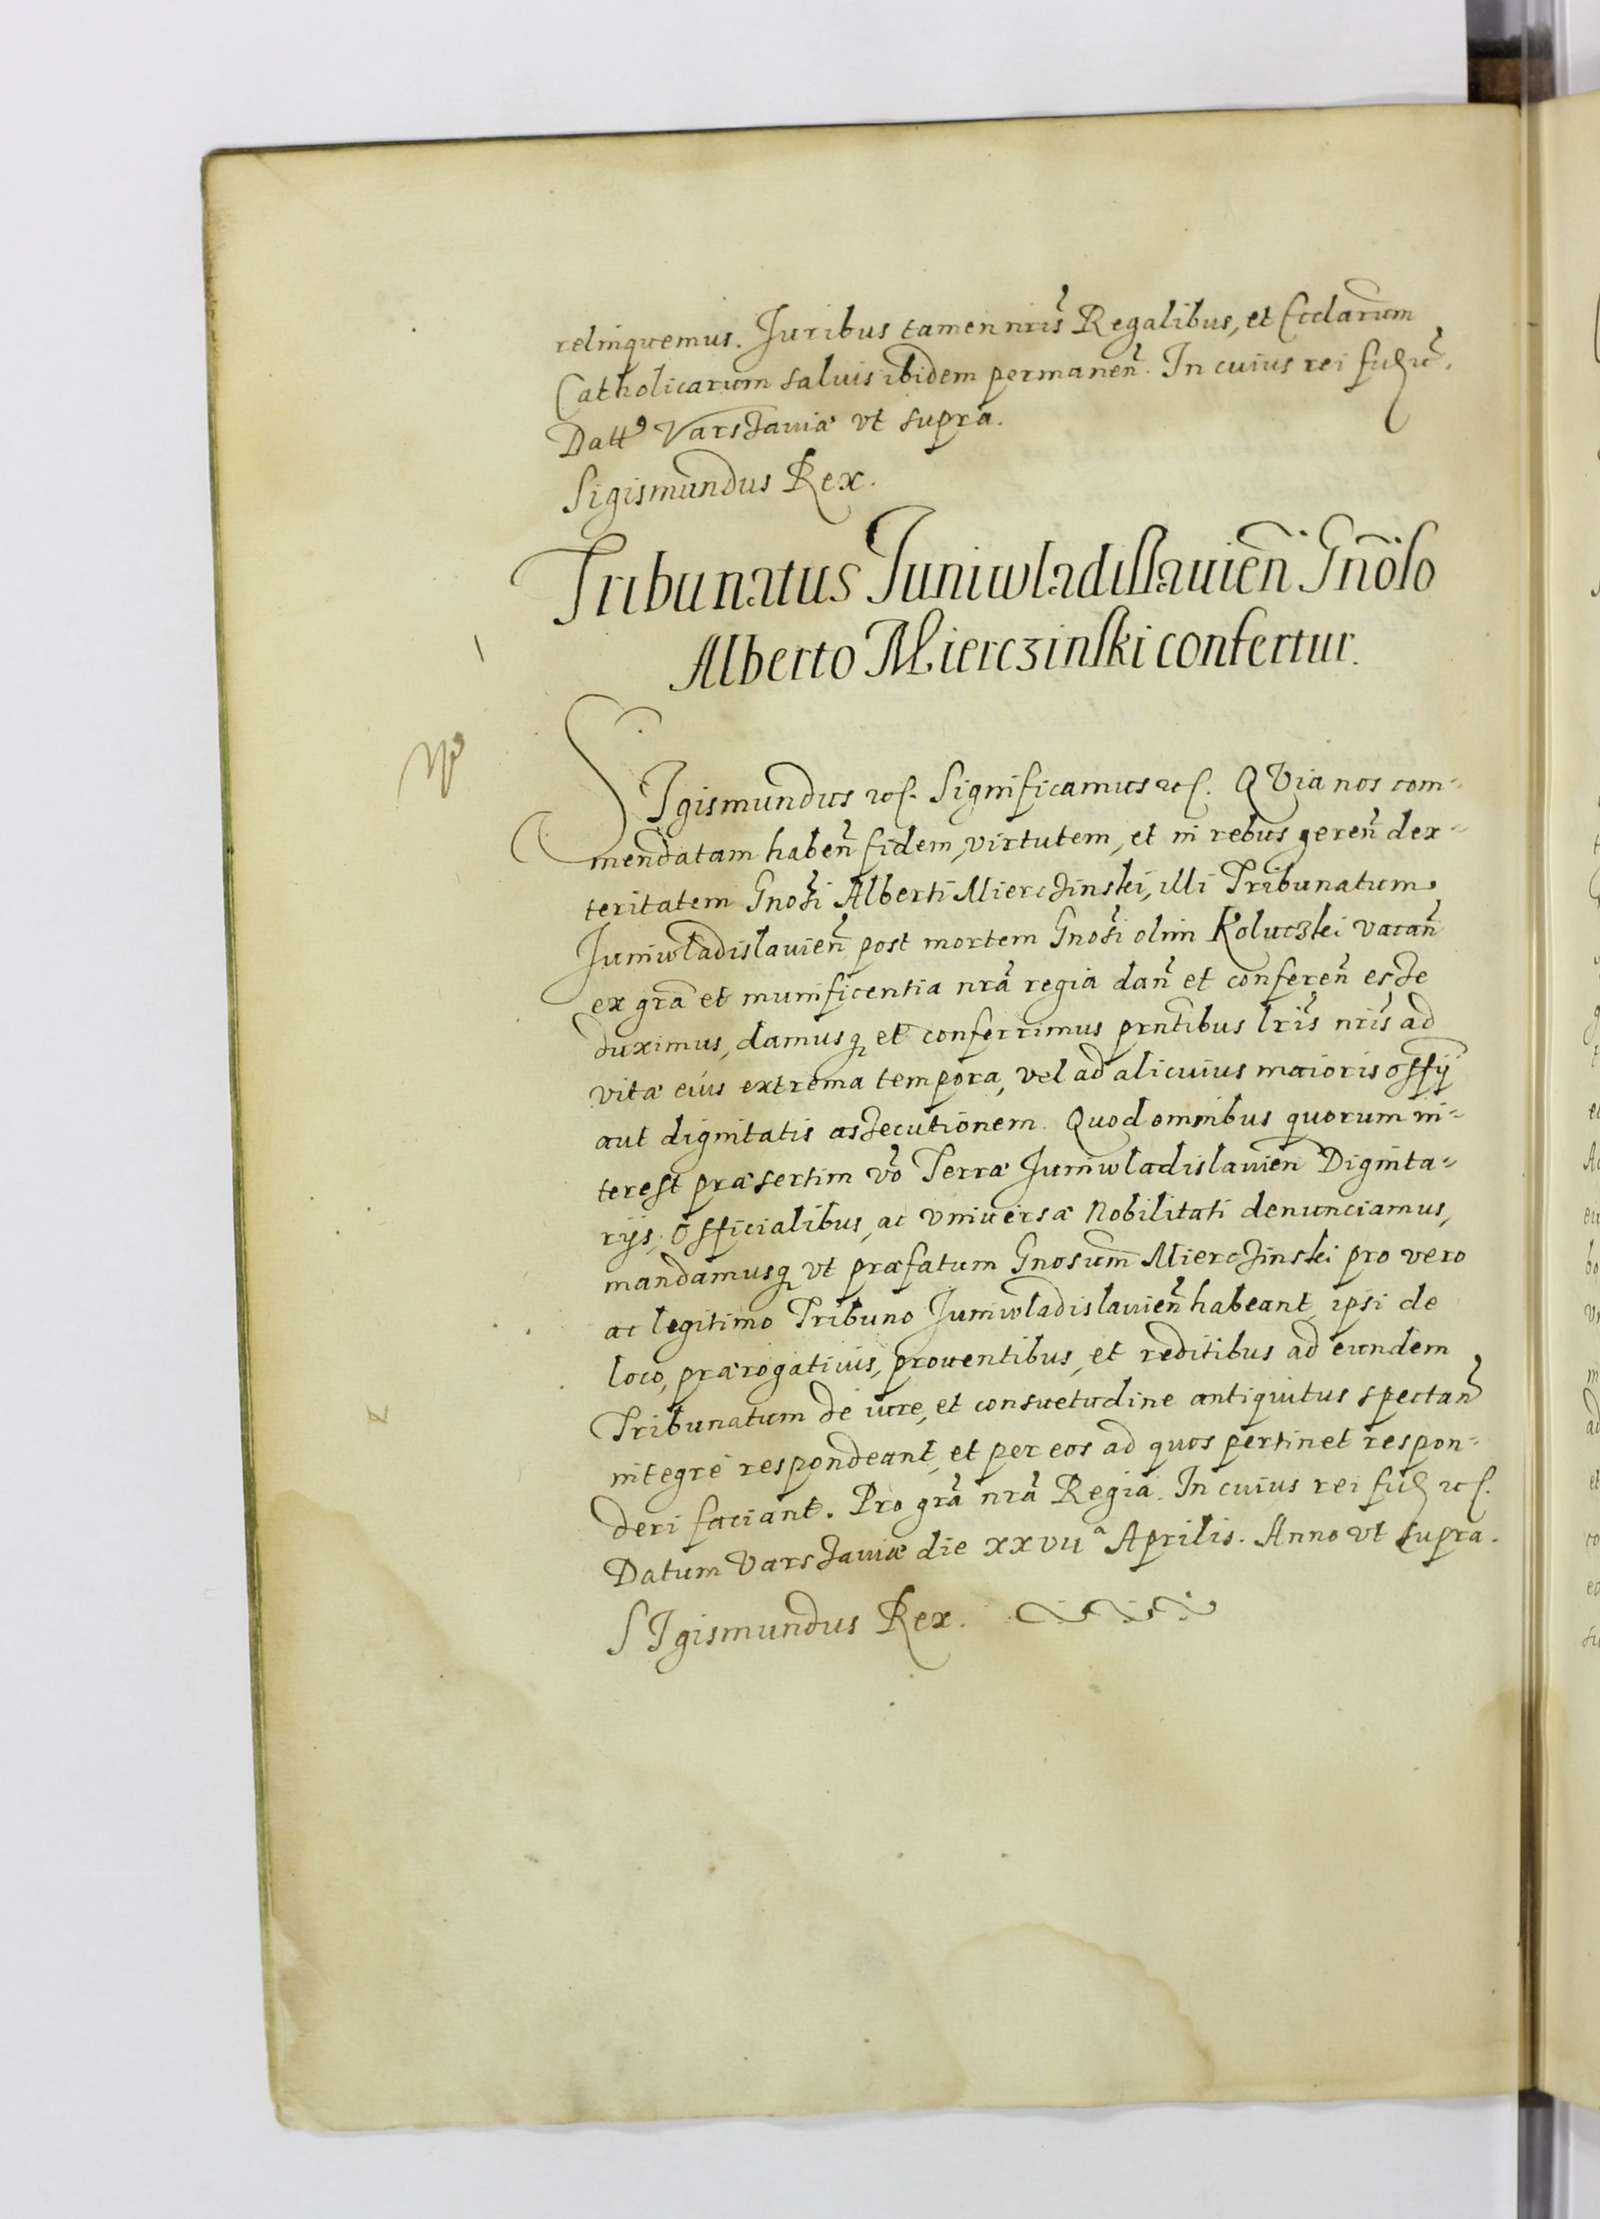 relinquemus. Juribus tamen nris Regalibus, et Ecclarum
Catholicarum saluis ibidem permanen̄. In cuius rei
Datt9 Varszauiæ vt supra.
Sigismundus Rex.
Tribunatus Juniwladislauien̄ Gnōso
Alberto Mierczinski confertur.
SIgismundus etc. Significamus etc. QVia nos com=
mendatam haben̄ fidem, virtutem, et in rebus geren̄ dex=
teritatem Gnosi Alberti Mierczinski, illi Tribunatum
Juniwladislauien̄ post mortem Gnosi olim Koluczki vacan̄
ex grā et munificentia nrā regia dan̄ et conferen̄ esse
duximus, damusq et conferrimus prntibus lris nris ad
vitæ eius extrema tempora, vel ad alicuius maioris offij
aut dignitatis assecutionem. Quod omnibus quorum in=
terest præsertim vō Terræ Juniwladislauien̄ Dignita=
rijs, Officialibus, ac vniuersæ Nobilitati denunciamus,
mandamusq vt præfatum Gnosum Mierczinski pro vero
ac legitimo Tribuno Juniwladislauien̄ habeant, ipsi de
loco, prærogatiuis, prouentibus, et reditibus ad eundem
Tribunatum de iure, et consuetudine antiquitus spectan̄
integrè respondeant, et per eos ad quos pertinet respon=
deri faciant. Pro grā nrā Regia. In cuius rei fid etc.
Datum Varszauiæ die xxvii a Aprilis. Anno vt supra.
SIgismundus Rex.